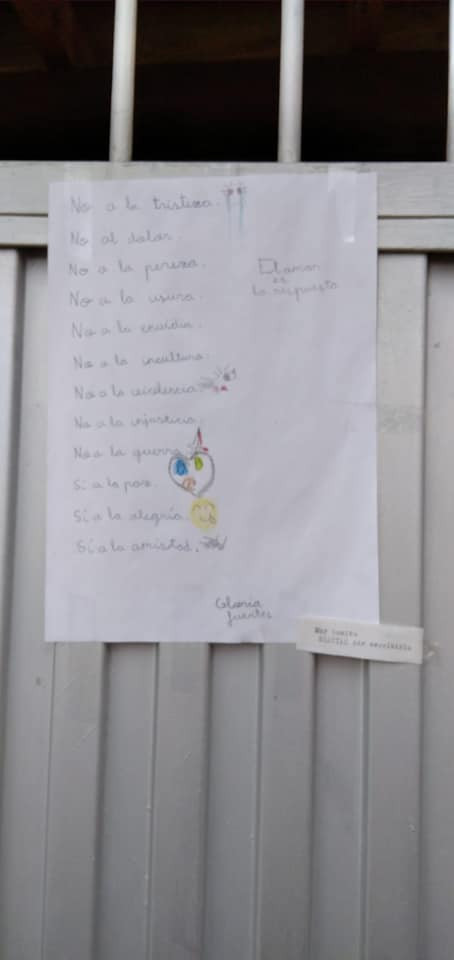 No a la tristeza.
No al dolor.
No a la pereza.
No a la usura.
No a la envidia.
No a la incultura.
No a la violencia.
No a la injusticia.
No a la guerra.
Sí a la paz.
Sí a la alegría.
Sí a la amistad.
El amor
es
la respuesta
Gloria
fuertes
Muy bonito
GRACIAS por escribirlo